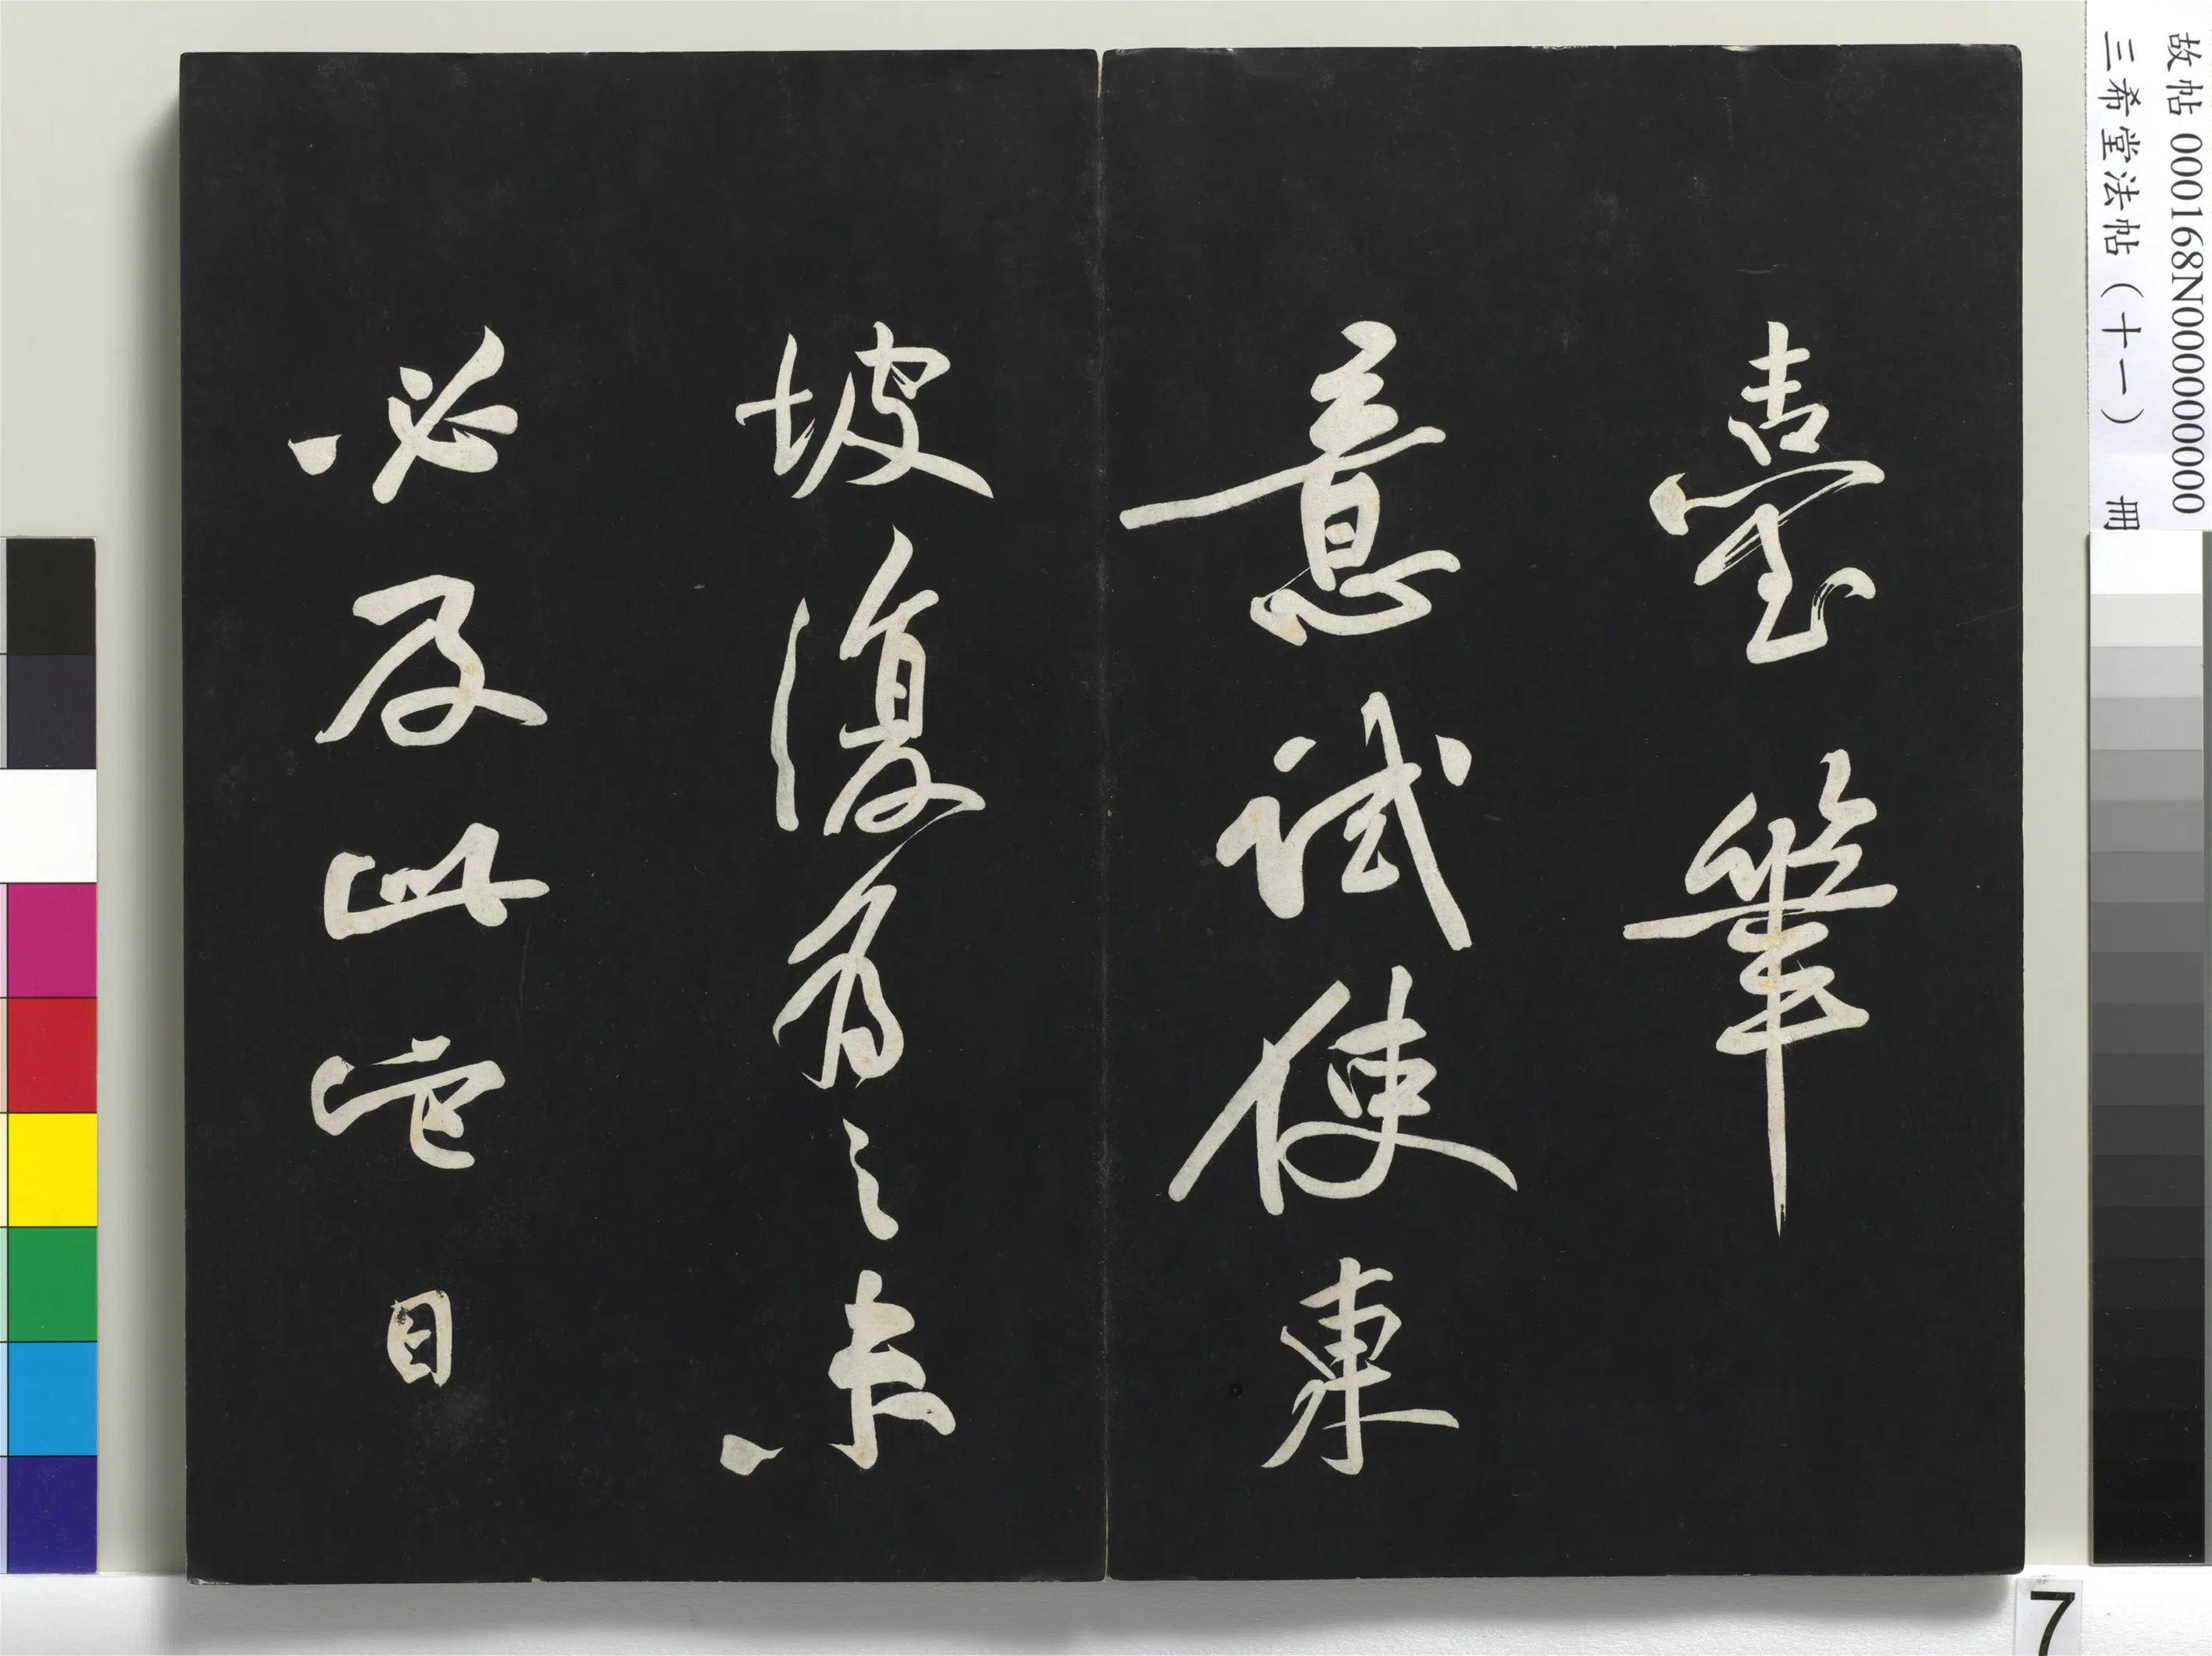 臺筆
意試使東
坡復為之未
必及此它日
故帖 000168N000000000
三希堂法帖（十一） 冊
7